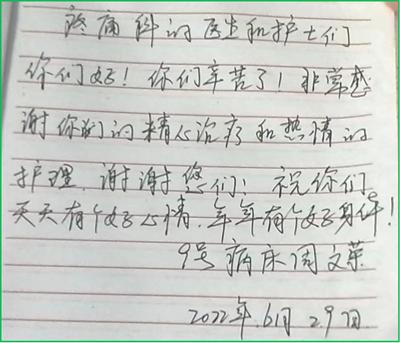 疼痛科的医生和护士们
你们好！你们辛苦了！非常感
谢你们的精心治疗和热情的
护理，谢谢您们；祝你们
天天有个好心情，年年有个好身体！
9号病床周文荣
2022年6月29日